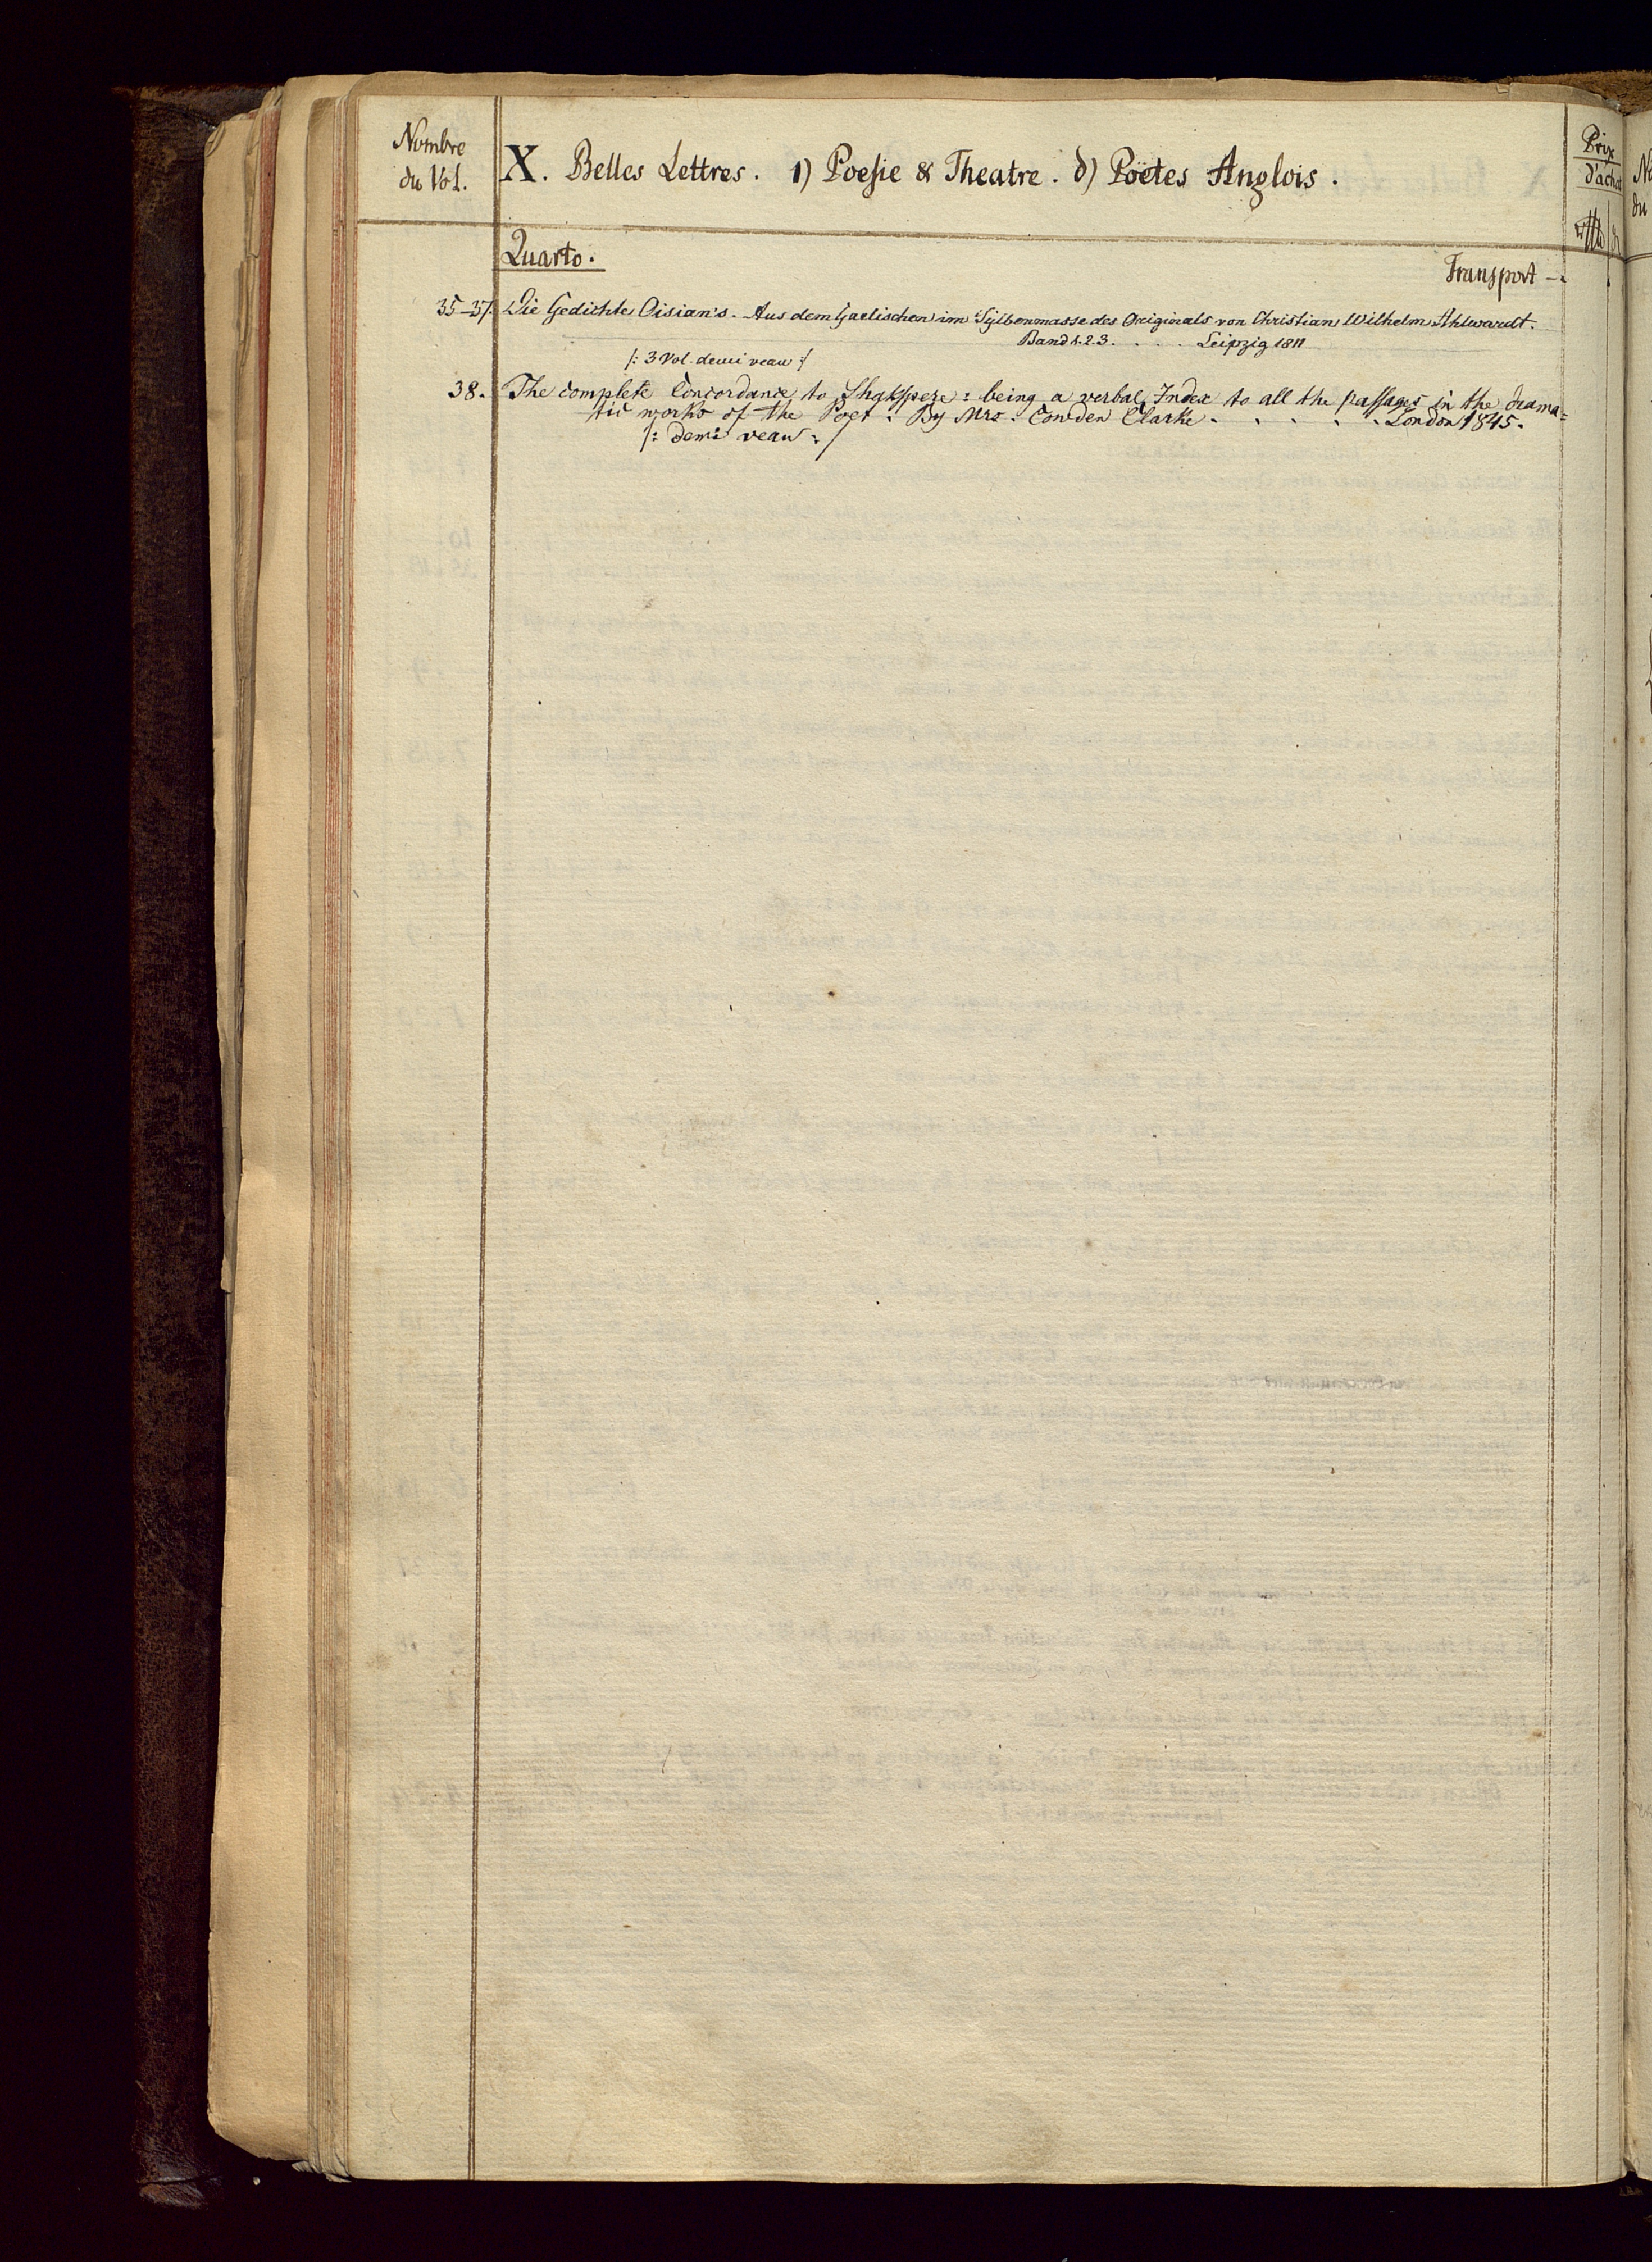 Nombre
du Vol.
X. Belles Lettres. 1) Poesie & Theatre. d) Poëtes Anglois.
Prix
d'achat
Quarto.
Transport —.
35–37. Die Gedichte Oisian's. Aus dem Gaelischen im Sylbenmasse des Originals von Christian Wilhelm Ahlwardt.
Band 1. 2. 3. . . . . Leipzig 1811
/: 3 Vol. demi veau :/
38. The complete Concordance to Shakspere: being a verbal Index to all the passages in the drama=
tic works of the Poet. By Mrs. Cowden Clarke . . . . . . London 1845.
/: demi veau :/